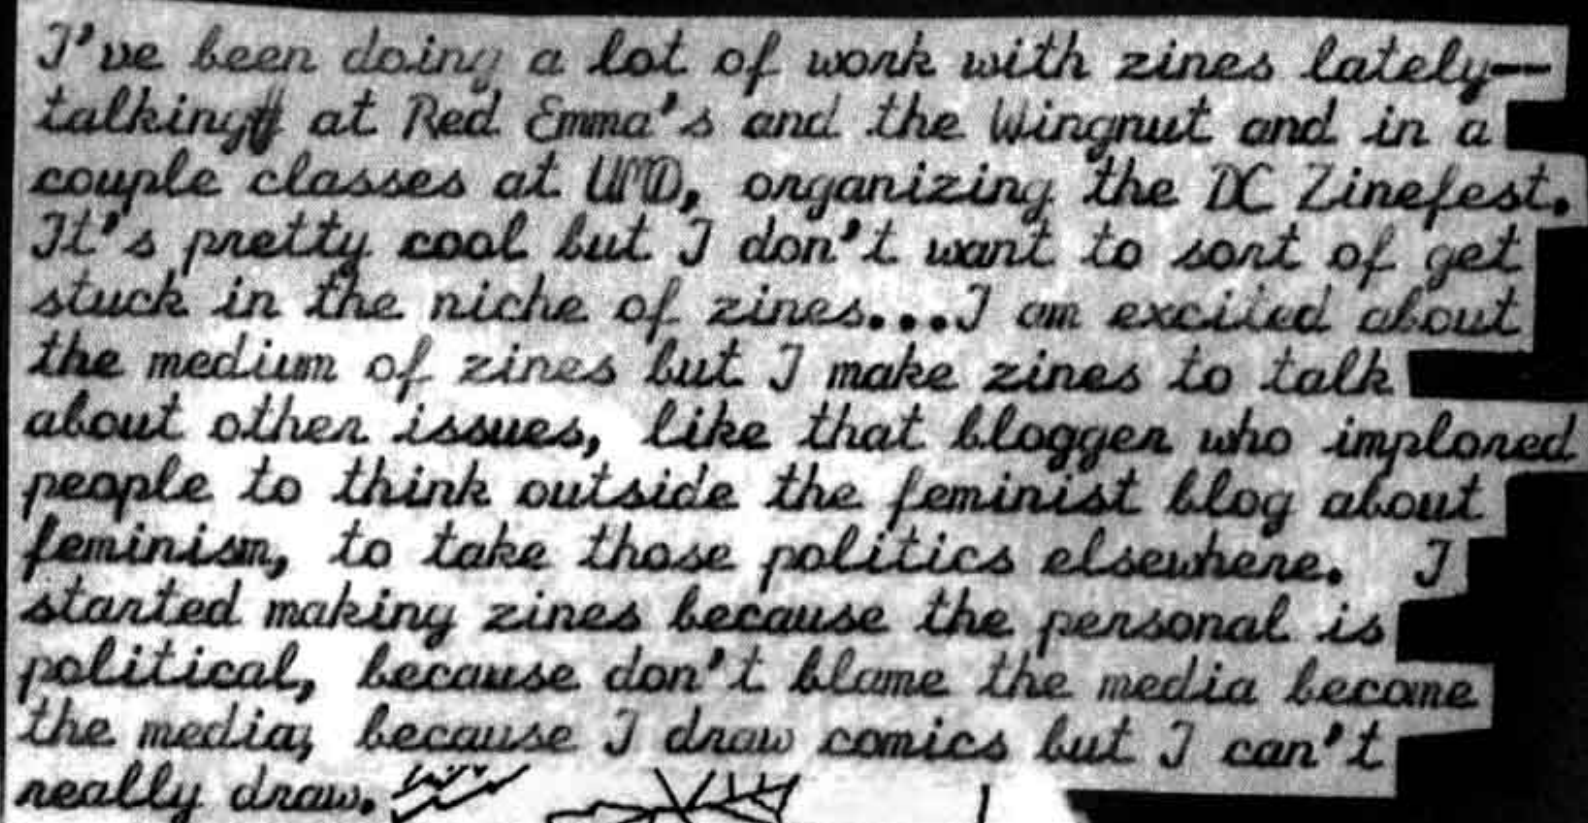 I've been doing a lot of work with zines lately—
talking at Red Emma's and the Wingnut and in a
couple classes at UMD, organizing the DC Zinefest.
It's pretty cool but I don't want to sort of get
stuck in the niche of zines....I am excited about
the medium of zines but I make zines to talk
about other issues, like that blogger who implored
people to think outside the feminist blog about
feminism, to take those politics elsewhere. I
started making zines because the personal is
political, because don't blame the media become
the media; because I draw comics but I can't
really draw.